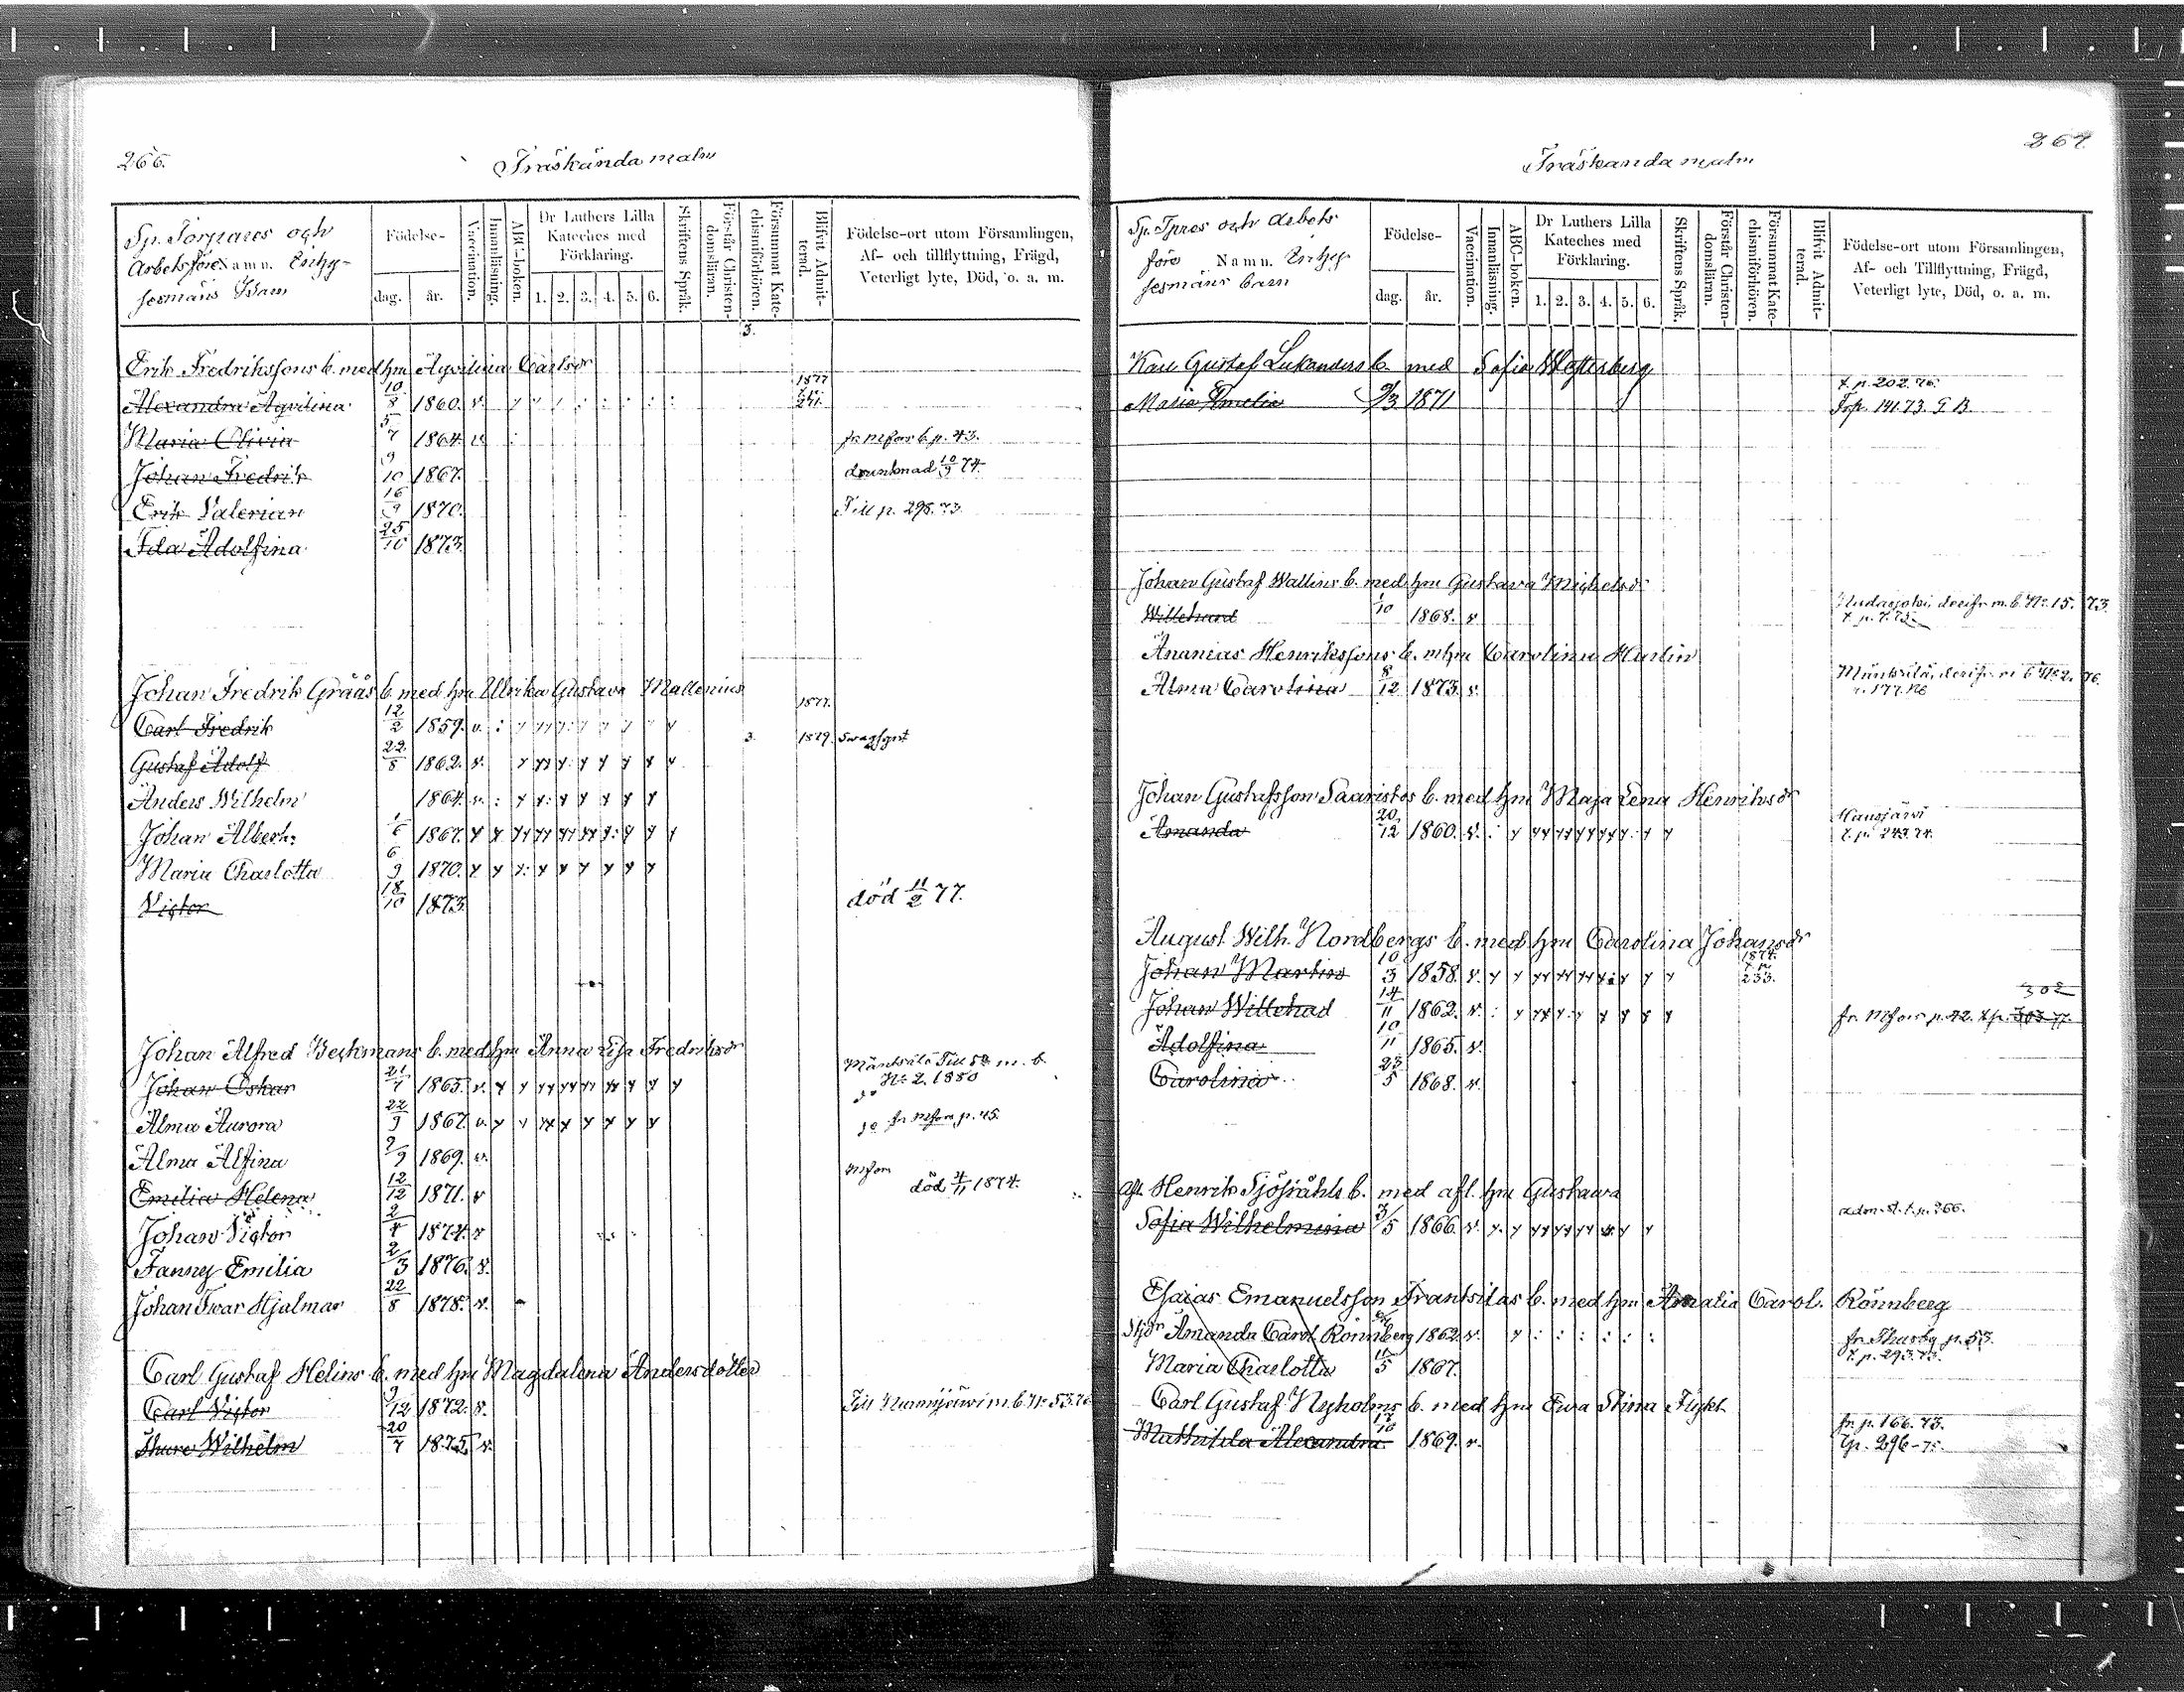 266.
Träskända malm
Sp. Torpares och
Arbetsföre Namn. Enhg-
sesmäns Barn
Födelse-
dag.
år.
Vaccination.
Innanläsning.
ABC-boken.
Dr Luthers Lilla
Kateches med
Förklaring.
1. 2. 3. 4. 5. 6.
Skriftens Språk.
Förstår Christen-
domsläran.
Försummat Kate-
chismiförhören.
Blifvit Admit-
terad.
Födelse-ort utom Församlingen,
Af- och tillflyttning, Frägd,
Veterligt lyte, Död, o. a. m.
3.
Erik Fredrikssons b. med hu Agvilina Carlsdr
Alexandra Agvilina 10/8 1860. v. 1877 241.
Maria Olivia 5/7 1864. v. fr. Mfors b. p. 43.
Johan Fredrik 9/10 1867. drunknad 10/9 74.
Erik Valerian 16/9 1870. Till p. 298. 73.
Ida Adolfina 25/10 1873.
Johan Fredrik Grääs b. med hu Ulrika Gustava Mallenius
Carl Fredrik 12/2 1859. v. 1877.
Gustaf Adolf 22/8 1862. v. 3. 1879. Swagsynt
Anders Wilhelm 1864. v.
Johan Albert 1/6 1867.
Maria Charlotta 6/9 1870.
Victor 18/10 1873. död 11/2 77.
Johan Alfred Beckmans b. med hu Anna Lisa Fredriksdr
Johan Oskar 21/7 1865. v. Mäntsälä Till m. b. No 2. 1880
Alma Aurora 22/9 1867. v. do
Alma Alfina 2/9 1869. v. do fr Mfors p. 45.
Emilia Helena 12/12 1871. v. Mfors död 4/11 1874.
Johan Victor 2/4 1874. v.
Fanny Emilia 2/3 1876. v.
Johan Ivar Hjalmar 22/8 1878. v.
Carl Gustaf Helins b. med hu Magdalena Andersdotter
Carl Victor 9/12 1872. v. Till Nurmijärvi m. b. No 53. 76
Thure Wilhelm 20/7 1875. v.
267.
Träskanda malm
Sp. Tpres och arbets
före Namn. Enhgs
sesmäns barn
Födelse-
dag.
år.
Vaccination.
Innanläsning.
ABC-boken.
Dr Luthers Lilla
Kateches med
Förklaring.
1. 2. 3. 4. 5. 6.
Skriftens Språk.
Förstår Christen-
domsläran.
Försummat Kate-
chismiförhören.
Blifvit Admit-
terad.
Födelse-ort utom Församlingen,
Af- och Tillflyttning, Frägd,
Veterligt lyte, Död, o. a. m.
Karl Gustaf Lukanders b. med Sofia Westerberg
Maria Amelia 9/3 1871 t. p. 202. 76. Frp. 141. 73. G B.
Johan Gustaf Wallins b. med hu Gustava Michelsdr
Willehard 1/10 1868. v. derifr. m. b. No. 15. 73. t. p. 7. 75.
Ananias Henrikssons b. m hu Carolina Hurlin
Alma Carolina 8/12 1873. v. Mäntsälä, derifr. m b No 2. 76.
Johan Gustafsson Saaristos b. med hu Maja Lena Henriksdr
Amanda 20/12 1860. v. Hausjärvi t. p. 243. 74.
August Wilh. Nordbergs b. med hu Carolina Johansdr
Johan Martin 10/3 1858. v. 1874. t. p. 233.
Johan Willehad 14/11 1862. v. fr. Mfors p. 42. t. p. 303. 77. 302
Adolfina 10/11 1865. v.
Carolina 23/5 1868. v.
Afl. Henrik Sjöståhls b. med afl. hu Gustawa
Sofia Wilhelmina 3/5 1866. v. adm. st. t. p. 266.
Esaias Emanuelsson Frantsilas b. med hu Amalia Carol. Rönnberg
Stjdr Amanda Carol. Rönnberg 1862. v. fr. Thusby p. 53. t. p. 293. 73.
Maria Charlotta 11/5 1867.
Carl Gustaf Nyholms b. med hu Ewa Stina Flykt
Mathilda Alexandra 12/10 1869. v. fr. p. 166. 73. tp. 296 - 75.